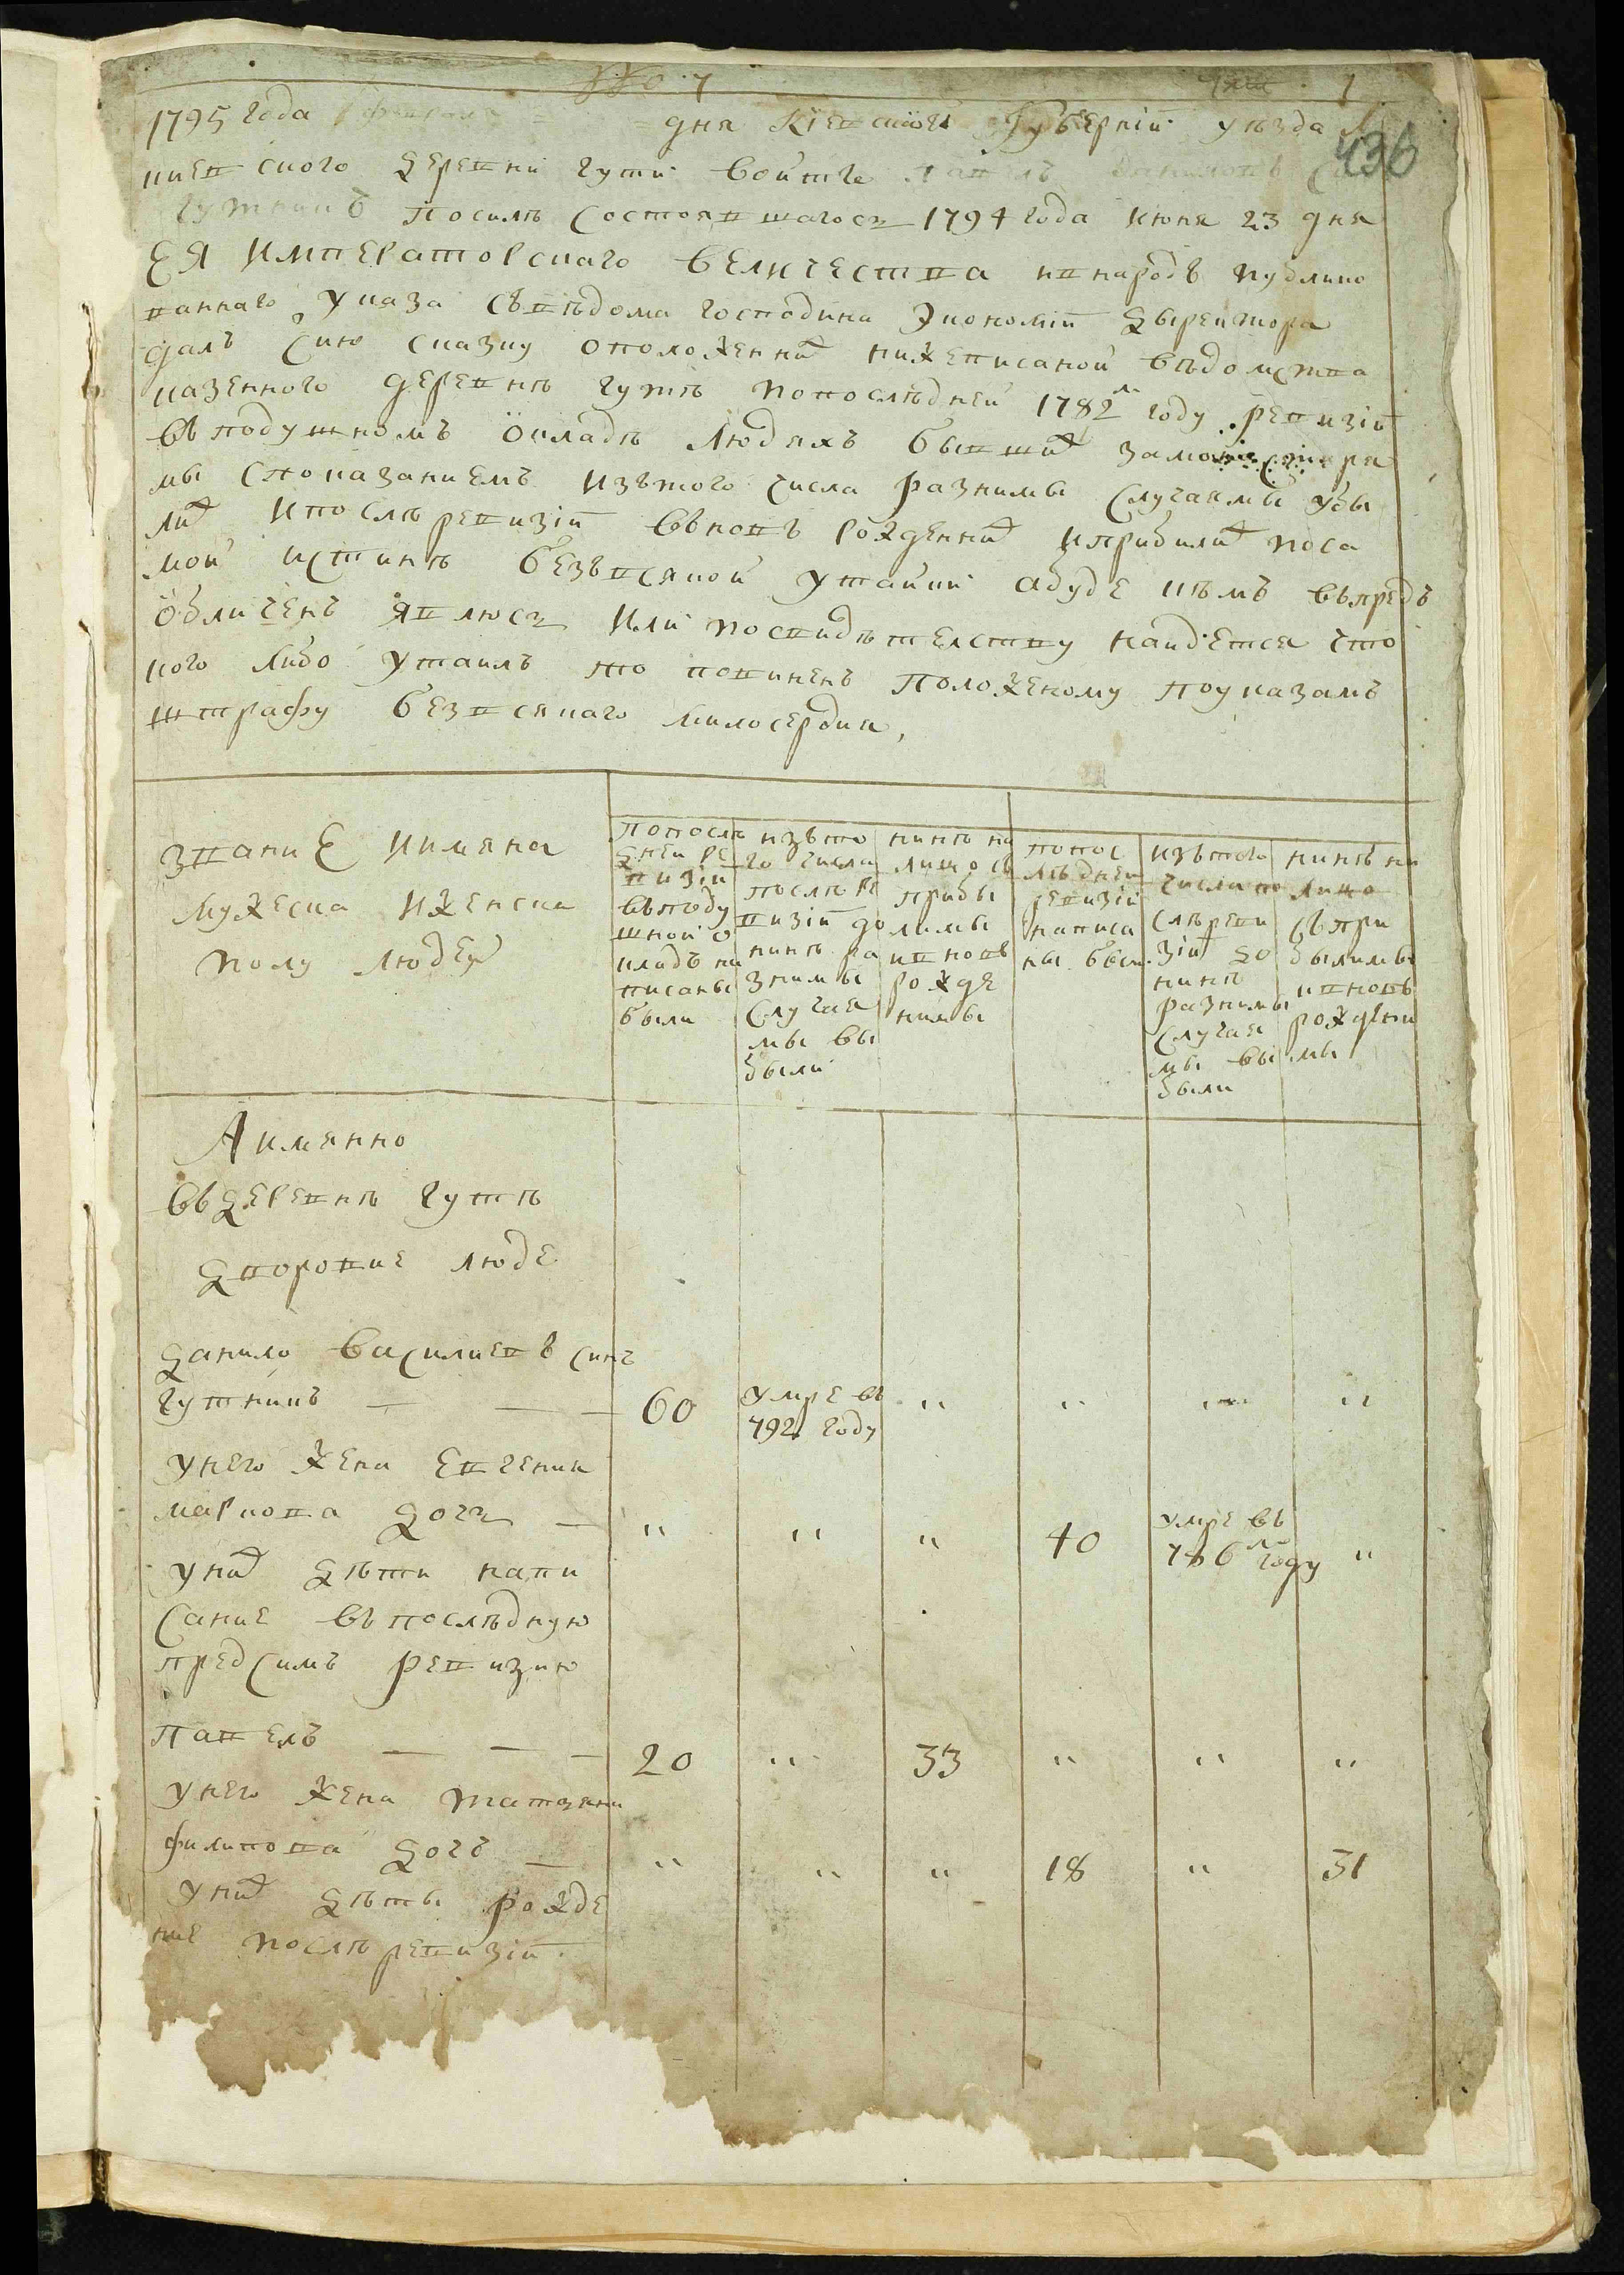 1
436
1795 года февраля дня Кіевской Губерніи уезда
ниевского деревни гути войтъ Павелъ Даниловъ
гутникъ посилѣ состоявшагося 1794 года июня 23 дня
Ея Императорскаго Величества в народъ публико
ваннаго указа сведома господина Экономіи дыректора
далъ сию сказку оположенной нижеписаной ведомства
казенного деревнѣ гутѣ попослѣдней 1782 году ревизіи
въ подушномъ окладѣ людяхъ бывших
мы споказаниемъ изътого числа разнимы случаямы убы
лих ипослѣ ревизіи вьновъ рожденних иприбилих поса
мой истинѣ безъвсякой утайки абуде кѣмъ вьпредъ
обличенъ явлюсъ или посвидѣтелству найдется что
кого либо утаилъ то повиненъ положеному поуказамъ
штрафу безвсякаго милосердия,
звание иимяна
мужеска иженска
полу людей
попослѣ
дней ре
визіи
въподу
шной о
кладъ на
писаны
были
изъто
го числа
послѣ ре
визіи до
нинѣ ра
знимы
случая
мы вы
были
нинѣ на
лицо съ
прибы
лимы
ивновь
рожде
нимы
попос
лѣдней
ревизіи
написа
ны были
изътого
числа по
слѣреви
зіи до
нинѣ
разнимы
случая
мы вы
были
нинѣ на
лицо
сьпри
былимы
ивновь
рождени
мы
Аимянно
въдеревнѣ гутѣ
дворовие люде
Данило Василиевъ синъ
гутникъ — — — 60 умре въ 792 году " " " "
унего жена Евгения
Маркова дочъ — " " " 40 умре въ 786 году "
уних дѣти напи
сание въпослѣдную
предсимъ ревизию
Павелъ — — — 20 " 33 " " "
унего жена Татяна
Филипова дочъ — " " " 18 " 31
уних дѣты рожде
ние послѣ ревизіи.